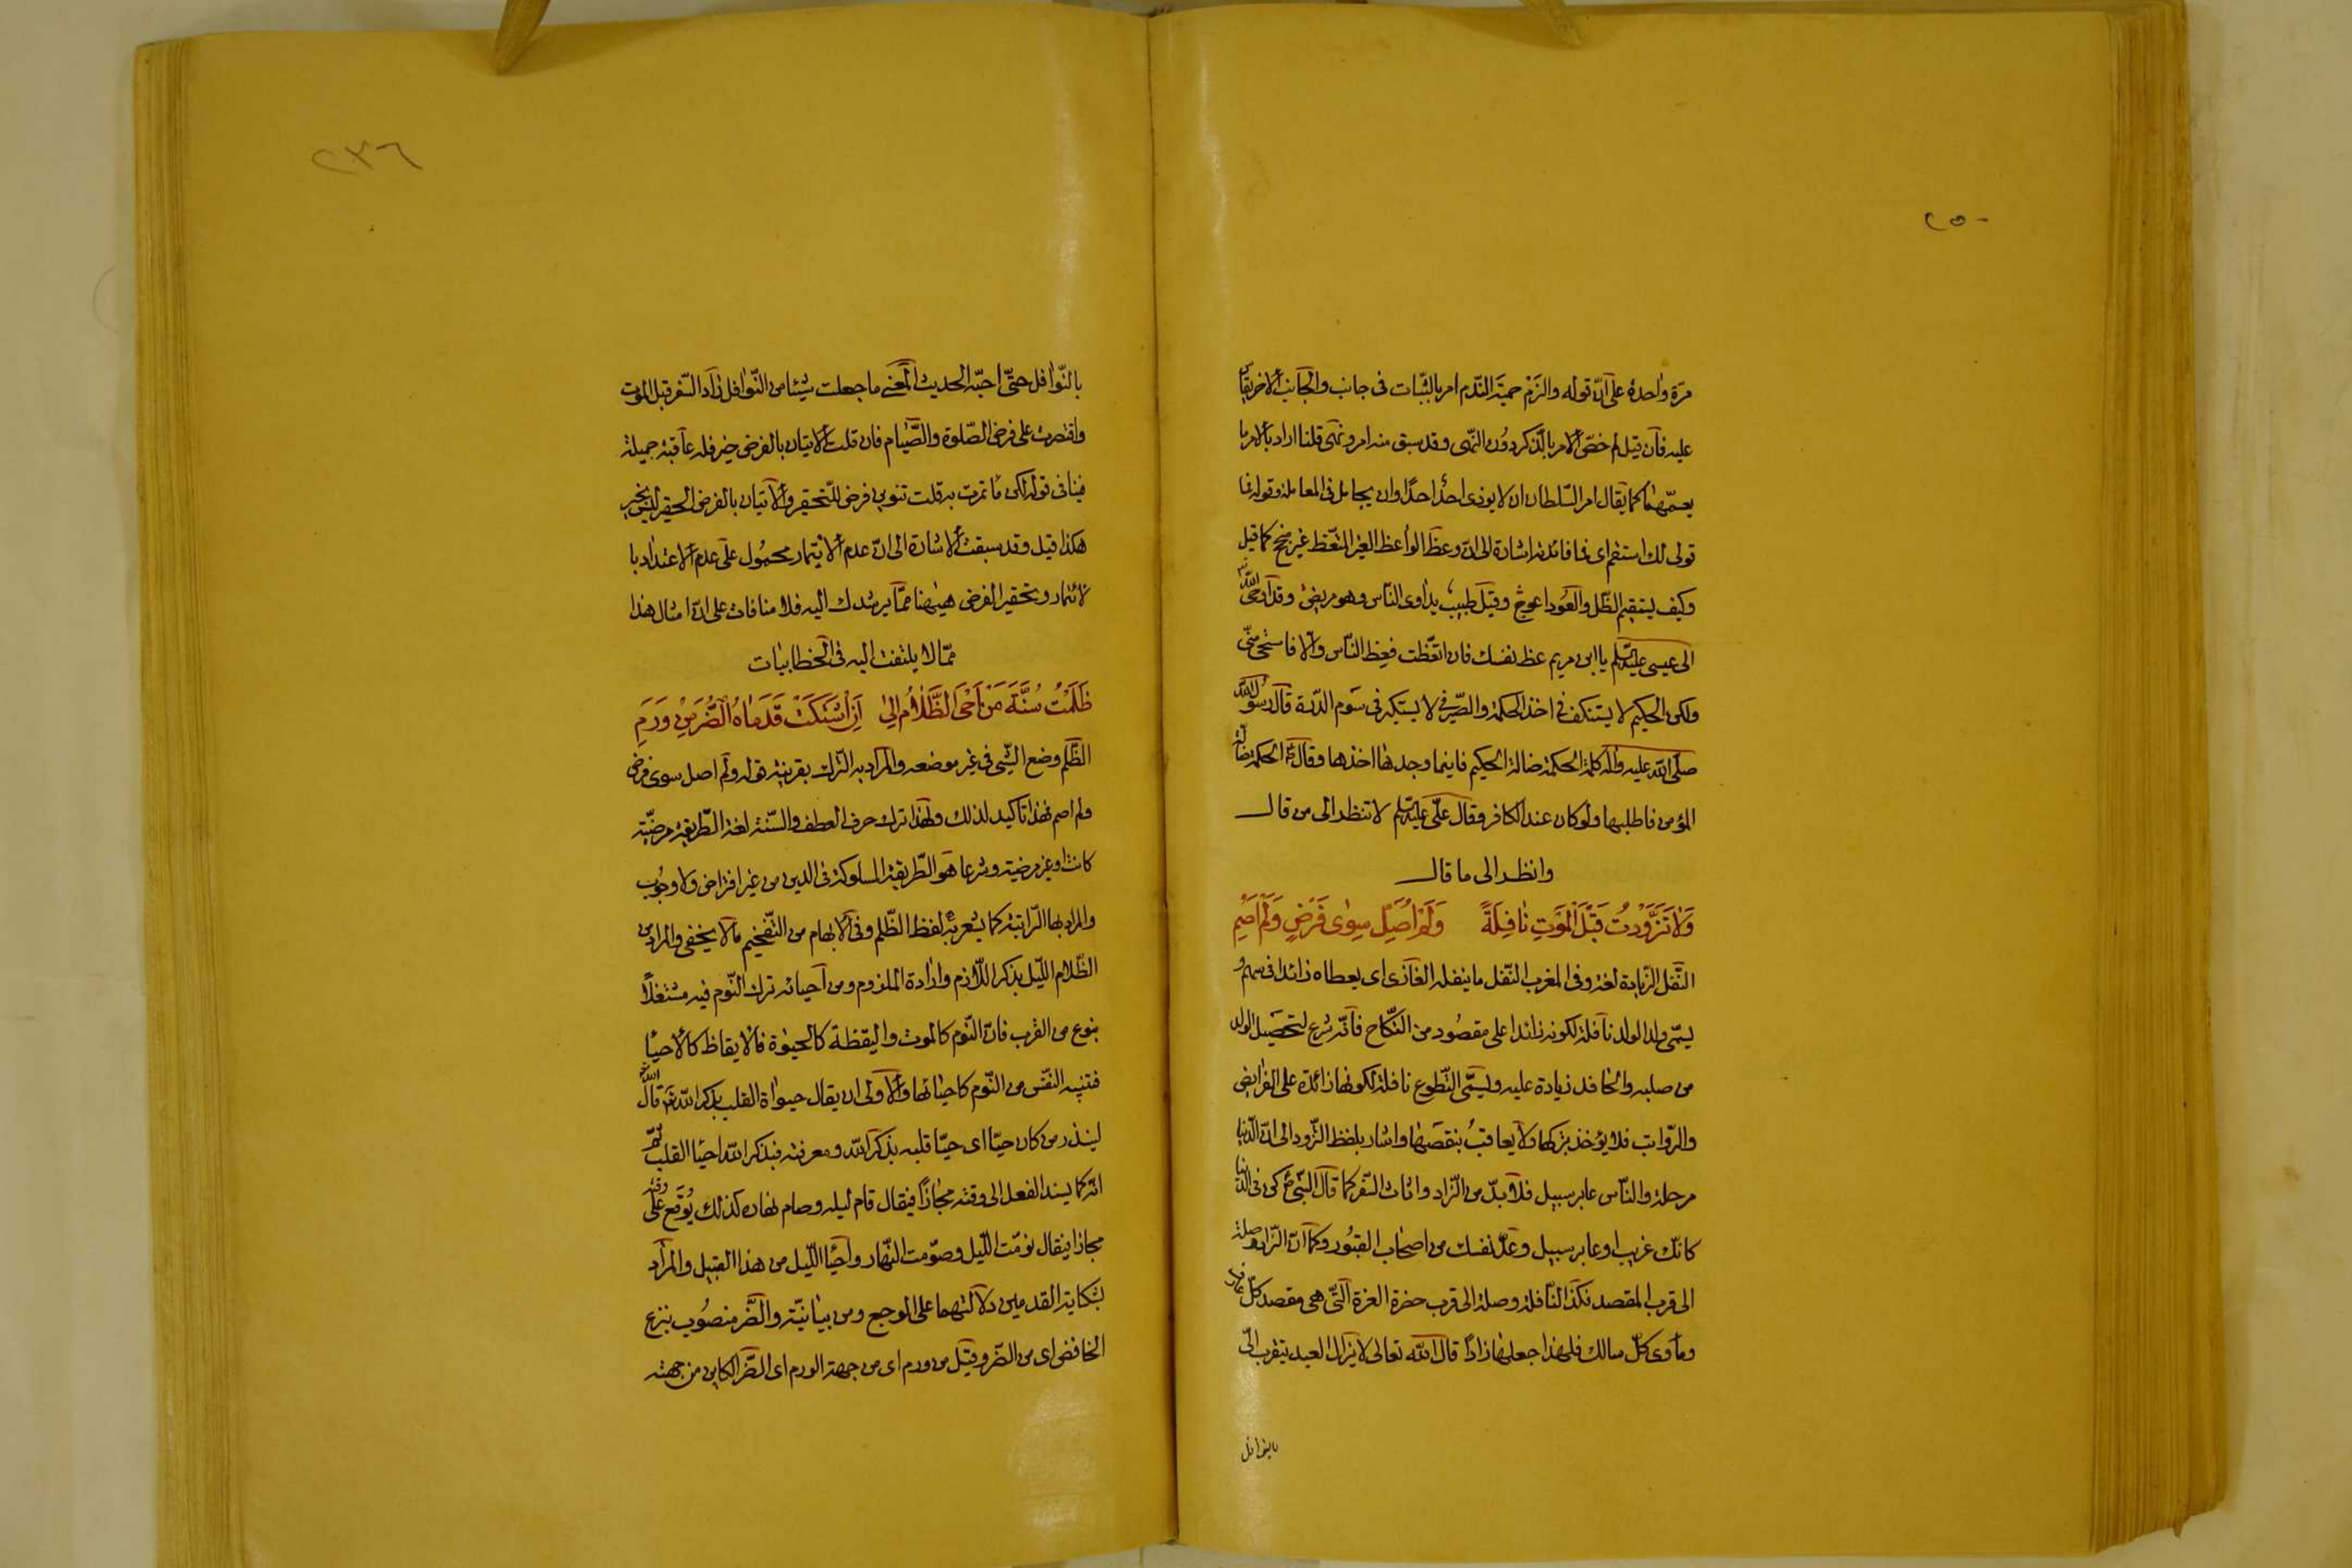 ٢٥٠
مرّة واحدة على انّ قوله والزم حمية النّدم امر بالثبات فى جانب والجانب الاخر يقاس
عليه فان قيل لم خصّ الامر بالذّكر دون النّهى وقد سبق منه امر ونهى قلنا اراد بالامر ما
يعمّهما كما يقال امر السّلطان ان لا يوذى احد احدًا وان يجامل فى المعاملة وقوله فما
قولى لك استقم اى فما فائدته اشارة الى انّ وعظ الواعظ الغير المتّعظ غير منجح كما قيل
وكيف يستقيم الظّل والعود اعوج وقيل طبيب يداوى النّاس وهو مريض وقد اوحى الله تعالى
الى عيسى عليه السّلم يا ابن مريم عظ نفسك فان اتّعظت فعظ النّاس والّا فاستحى منّى
ولكن الحكيم لا يستنكف فى اخذ الحكمة والصّيرفى لا يستكبر فى سوم قال رسول الله
صلّى الله عليه واله كلمة الحكمة ضالة الحكيم فاينما وجدها اخذها وقال ع الحكمة ضالّة
المؤمن فاطلبها ولو كان عند الكافر وقال علّى عليه السّلم لا تنظر الى من قال
وانظر الى ما قال
وَلَا تَزَوَّدْتُ قَبْلَ الْمَوْتِ نَافِلَةً وَلَمْ اُصَلِّ سِوٰى فَرْضٍ وَلَمْ اَصُمِ
النّفل الزّيادة لغة وفى المغرب النّفل ما ينفله الغازى اى يعطاه زائدا فى سهمه و
يسمّى ولد الولد نافلة لكونه زائدا على مقصود من النّكاح فانّه شرع لتحصيل الولد
من صلبه والحافد زيادة عليه ويسمّى التّطوع نافلة لكونها زائدة على الفرايض
والرّواتب فلا يؤخذ بتركها ولا يعاقب بنقصها واشار بلفظ التّزود الى انّ الدّنيا
مرحلة والنّاس عابر سبيل فلا بدّ من الزّاد واثاث السّفر كما قال النّبى ع كن فى الدّنيا
كانّك غريب او عابر سبيل وعدّ نفسك من اصحاب القبور وكما انّ الزّاد وصلة
الى قرب المقصد فكذا النّافلة وصلة الى قرب حضرة العزة الّتى هى مقصد كلّ عارف
وماوى كلّ سالك فلهذا جعلها زادًا قال الله تعالى لا يزال العبد يتقرب الىّ
بالنوافل
٢٣٦
بالنّوافل حتّى احبّه الحديث المعنى ما جعلت شيئا من النّوافل زاد السّفر قبل الموت
واقتصرت على فرض الصّلوة والصّيام فان قلت الاتيان بالفرض خير فله عاقبة جميلة
فينافى قوله لكن ما ائتمرت به قلت تنوين فرض للتّحقير والاتيان بالفرض الحقير ليس بخير
هكذا قيل وقد سبقت الاشارة الى انّ عدم الائتمار محمول على عدم الاعتداد با
لائتمار وتحقير الفرض هيهنا ممّا يرشدك اليه فلا منافات على انّ امثال هذا
ممّا لا يلتفت اليه فى الخطابيات
ظَلَمْتُ سُنَّةَ مَنْ اَحْيَى الظَّلَامَ اِلٰى اَنِ اشْتَكَتْ قَدَمَاهُ الضُّرَّ مِنْ وَرَمِ
الظّلم وضع الشّيى فى غير موضعه والمراد به الترك بقرينة قوله ولم اصل سوى فرض
ولم اصم فهذا تاكيد لذلك ولهذا ترك حرف العطف والسّنة لغة الطّريقة مرضيّة
كانت او غير مرضية وشرعا هو الطّريقة المسلوكة فى الدين من غير افتراض ولا وجوب
والمراد بها الرّاتبة كما يشعر به لفظ الظّلم وفى الابهام من التّفخيم ما لا يخفى والمراد من
الظّلام اللّيل بذكر اللّازم وارادة الملزوم ومن احيائه ترك النّوم فيه مشتغلًا
بنوع من القرب فانّ النّوم كالموت واليقظة كالحيوة فالايقاظ كالاحياء
فتنبيه النفس من النّوم كاحيائها والاولى ان يقال حيواة القلب بذكر الله تعالى قال الله
لينذر من كان حيّا اى حيّا قلبه بذكر الله ومعرفته فبذكر الله احياء القلب ثمّ
انّه كما يسند الفعل الى وقته مجازًا فيقال قام ليله وصام نهاره كذلك يوقع على وقته
مجازا فيقال نوّمت اللّيل وصوّمت النّهار واحياء اللّيل من هذا القبيل والمراد
بشكاية القدمين دلالتهما على الموجع ومن بيانيّة والضّر منصوب بنزع
الخافض اى من الضّر وقيل من ورم اى من جهة الورم اى الضّر الكاين من جهته